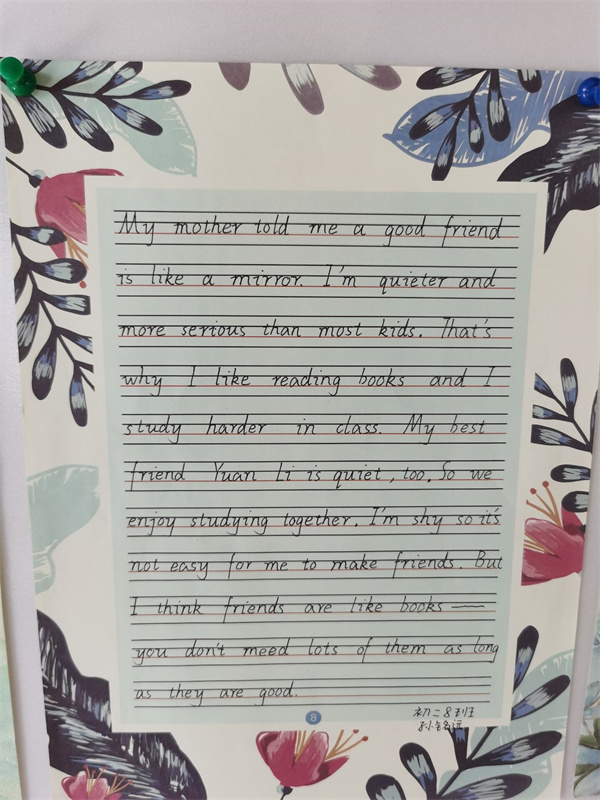 My mother told me a good friend
is like a mirror. I'm quieter and
more serious than most kids. That's
why I like reading books and I
study harder in class. My best
friend Yuan Li is quiet, too. So we
enjoy studying together. I'm shy so it's
not easy for me to make friends. But
I think friends are like books——
you don't meed lots of them as long
as they are good.
8
初二8班